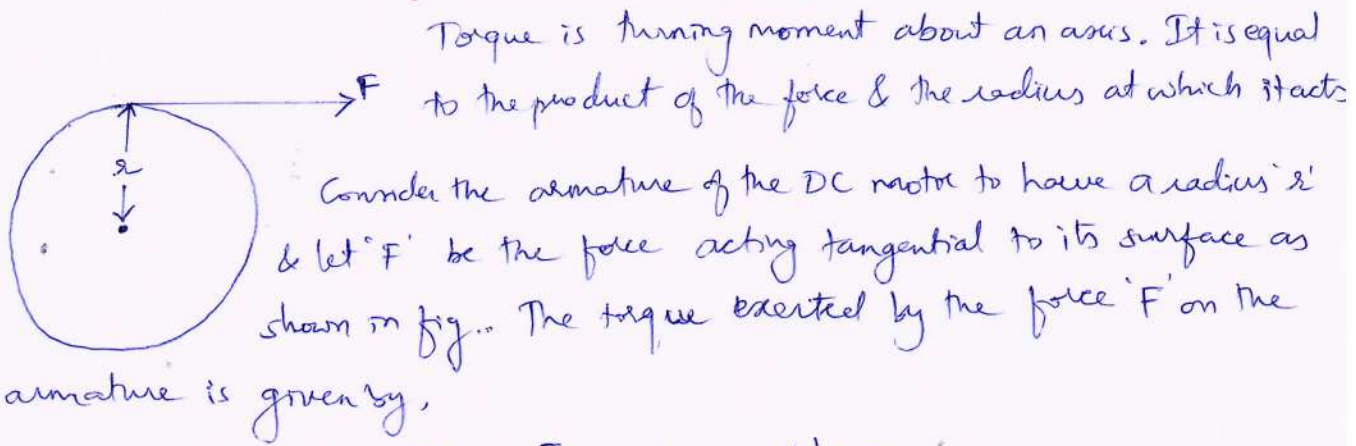 Torque is turning moment about an axis. It is equal
F to the product of the force & the radius at which it acts
r
Consider the armature of the DC motor to have a radius 'r'
& let 'F' be the force acting tangential to its surface as
shown in fig.. The torque exerted by the force 'F' on the
armature is given by,